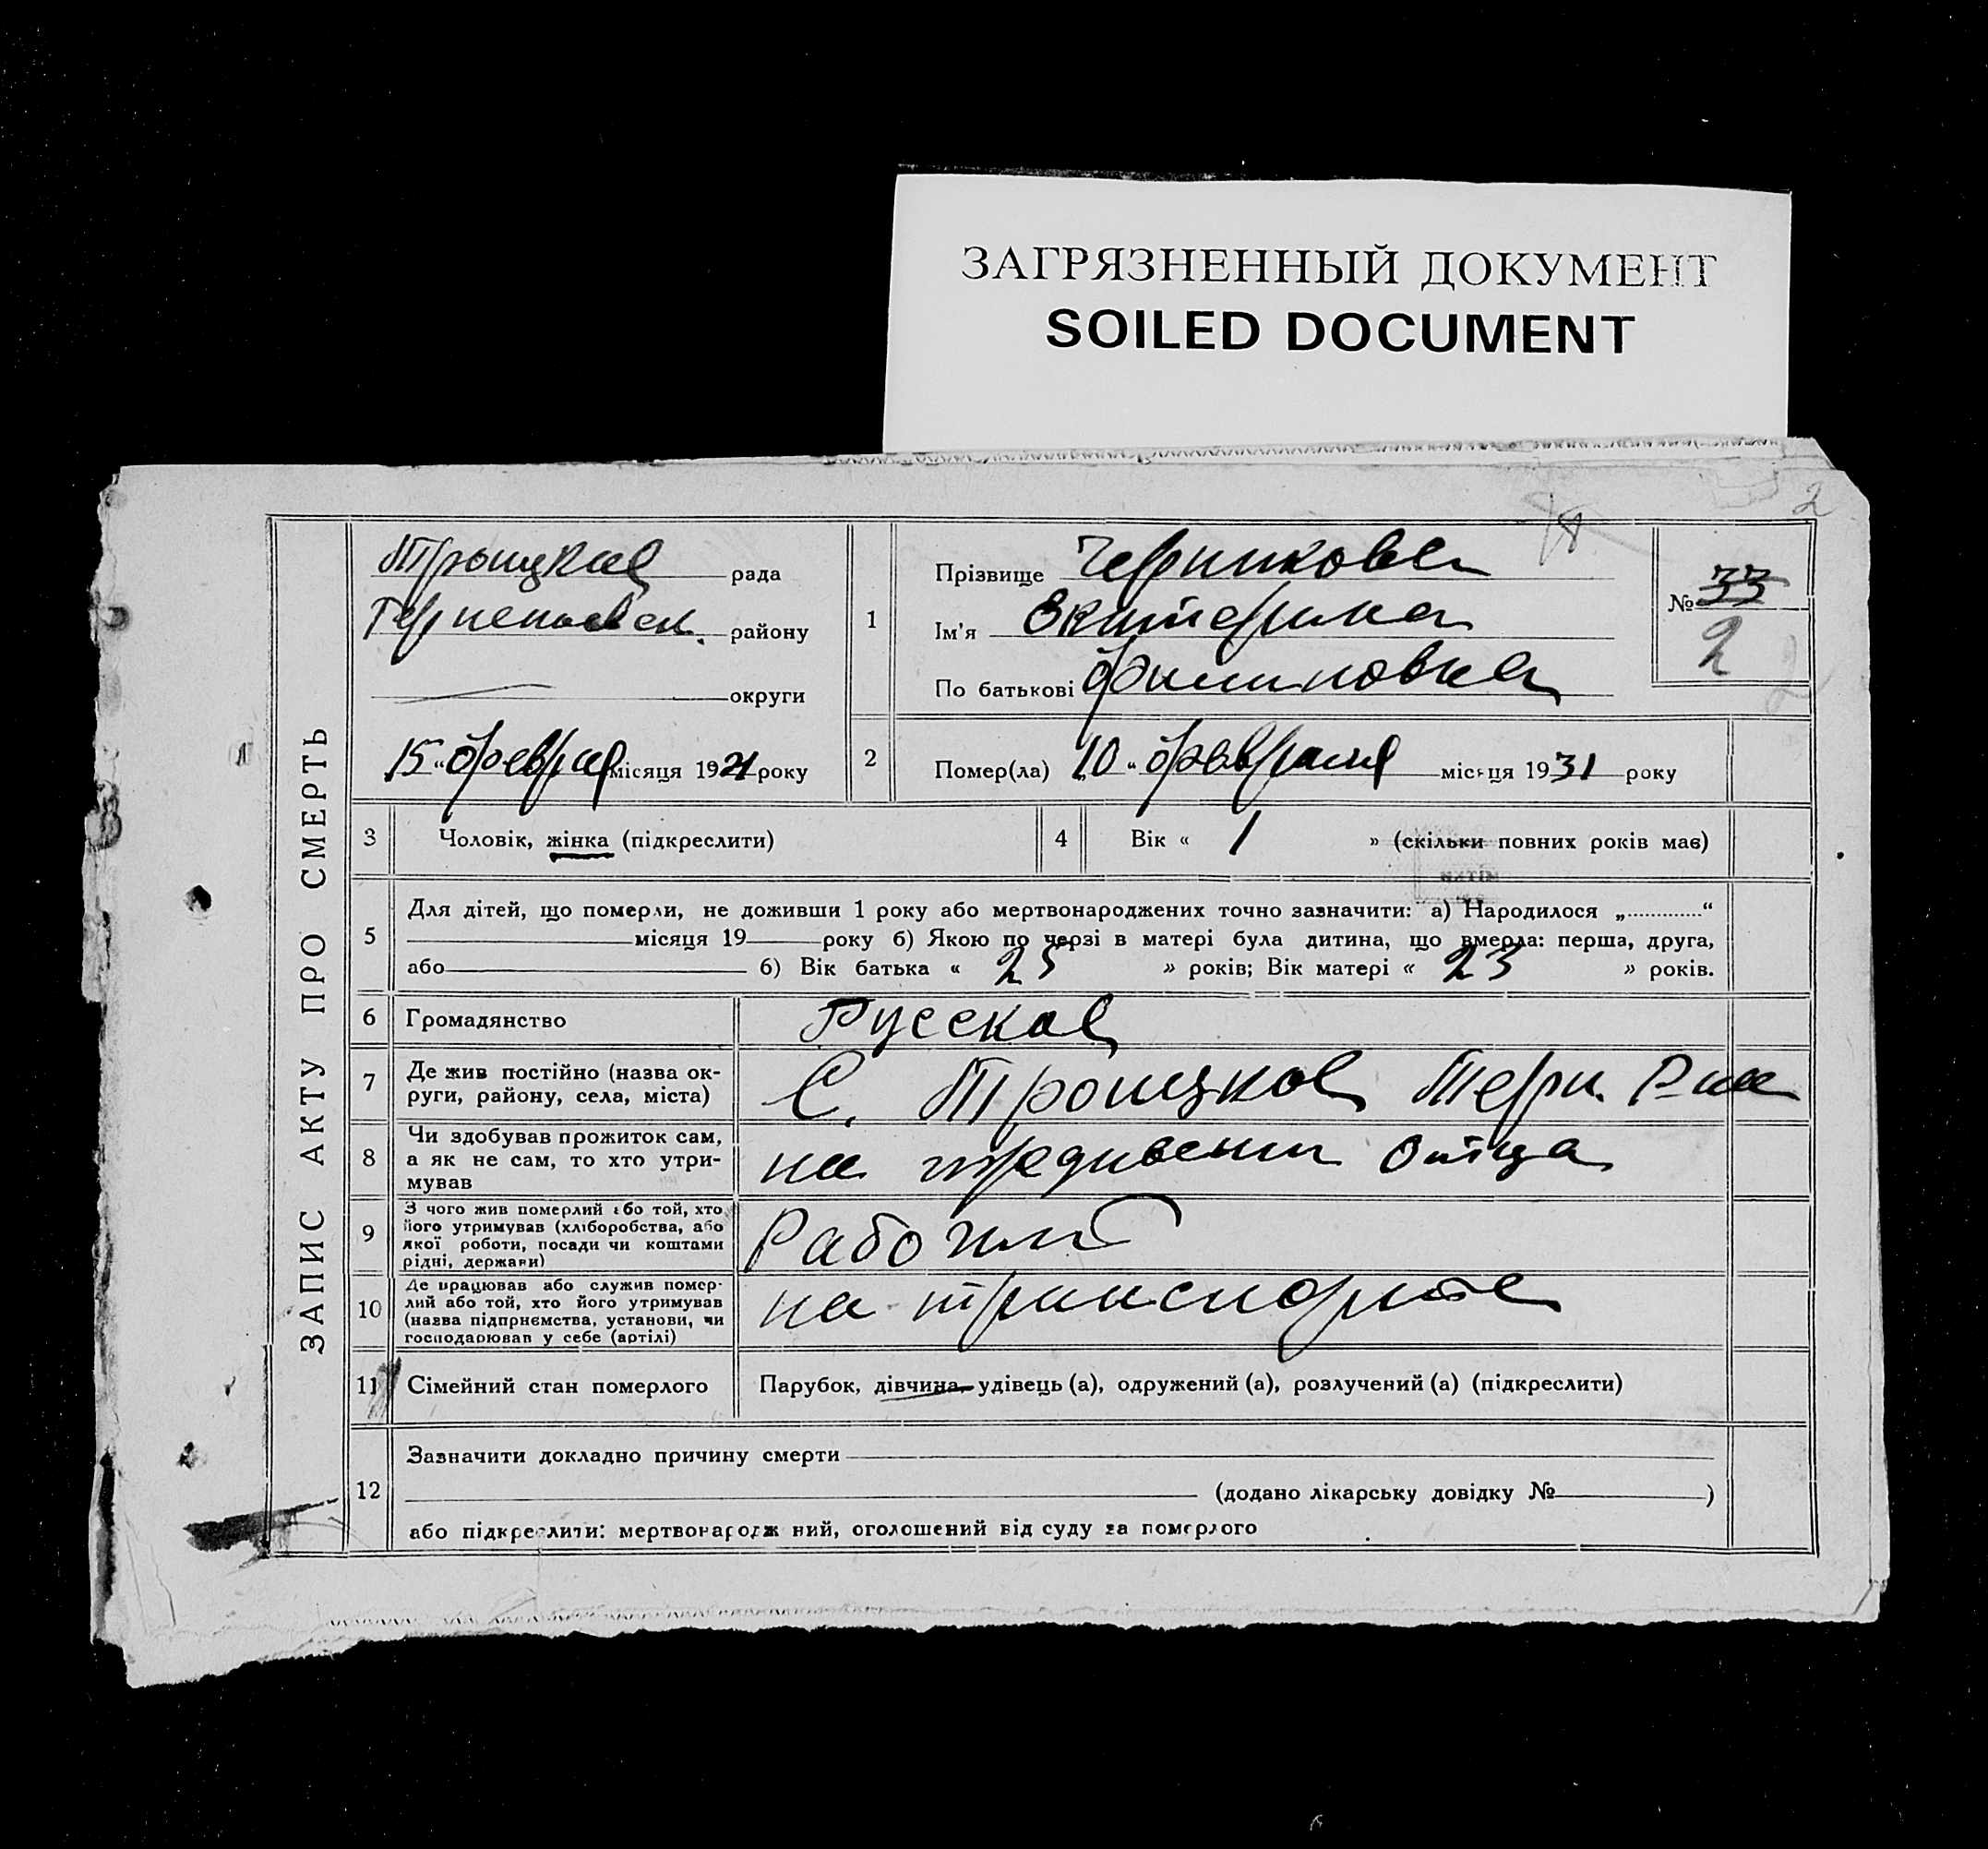 ЗАГРЯЗНЕННЫЙ ДОКУМЕНТ
SOILED DOCUMENT
2
ЗАПИС АКТУ ПРО СМЕРТЬ
Троицкая рада
району
округи
15 " феврал місяця 19 року
1
Прізвище Черникова
Ім'я Екатерина
По батькові Филиповна
№ 33
2
2
Помер(ла) „10 " февраля місяця 1931 року
3
Чоловік, жінка (підкреслити)
4
Вік « 1 » (скільки повних років має)
5
Для дітей, що померли, не доживши 1 року або мертвонароджених точно зазначити: а) Народилося „............“
місяця 19 року б) Якою по черзі в матері була дитина, що вмерла: перша, друга,
або б) Вік батька « 25 » років; Вік матері « 23 » років.
6
Громадянство
Русская
7
Де жив постійно (назва ок-
руги, району, села, міста)
С. Троицкое Терп. Р-на
8
Чи здобував прожиток сам,
а як не сам, то хто утри-
мував
на отца
9
З чого жив померлий або той, хто
його утримував (хліборобства, або
якої роботи, посади чи коштами
рідні, держави)
Рабочий
10
Де працював або служив помер-
лий або той, хто його утримував
(назва підприємства, установи, чи
господарював у себе (артілі)
на транспорте
11
Сімейний стан померлого
Парубок, дівчина, удівець (а), одружений (а), розлучений (а) (підкреслити)
12
Зазначити докладно причину смерти
(додано лікарську довідку № )
або підкреслити: мертвонароджений, оголошений від суду за померлого